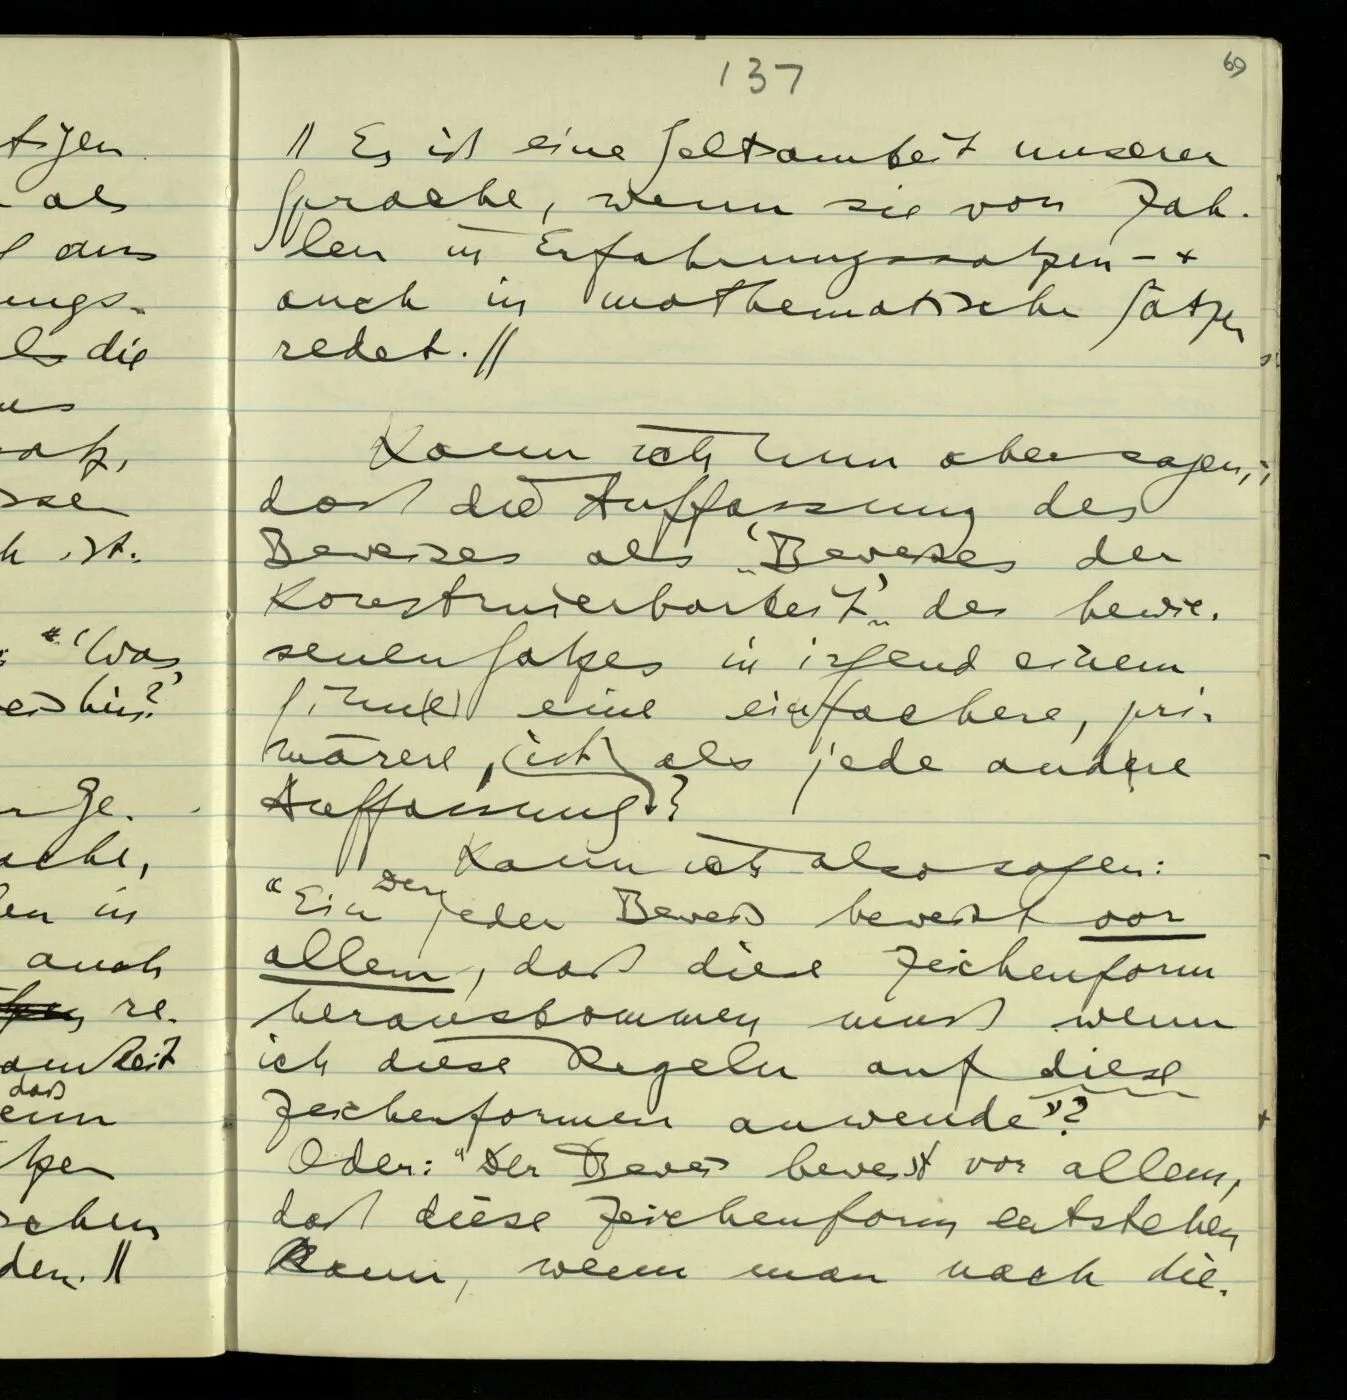 tigen
als
aus
ungs-
die
satz,
ist.
: "'Was
hin?'
Ge-
ache,
en in
auch
re-
amkeit
daß
enn
tzen
schen
den. //
137
69
// Es ist eine Seltsamkeit unserer
Sprache, wenn sie von Zah-
len in Erfahrungssätzen – +
auch in mathematische Sätze
redet. //
Kann ich nun aber sagen,
daß die Auffassung des
Beweises als „'Beweises der
Konstruierbarkeit'” des bewie-
senen Satzes in irgend einem
Sinn(e) eine einfachere, pri-
märere, (ist) als jede andere
Auffassung?
Kann ich also sagen:
"Ein Der jeder Beweis beweist vor
allem, daß diese Zeichenform
herauskommen muß wenn
ich diese Regeln auf diese
Zeichenformen anwende"?
Oder: "Der Beweis beweist vor allem,
daß diese Zeichenform entstehen
kann, wenn man nach die-